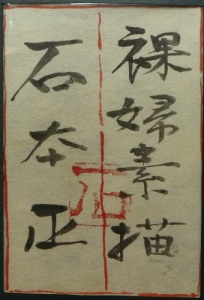 裸婦素描
石本正